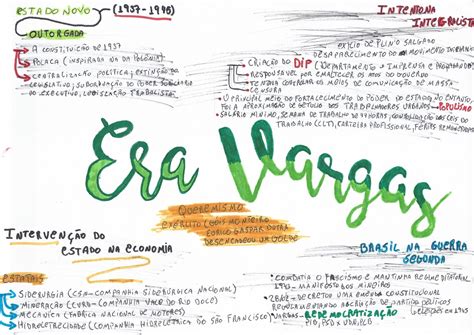 ESTADO NOVO (1937-1945)
OUTORGADA
A CONSTITUIÇÃO DE 1937
POLACA (INSPIRADA NA DA POLÔNIA)
CENTRALIZAÇÃO POLÍTICA, EXTINÇÃO DO
LEGISLATIVO, SUBORDINAÇÃO DO
DO EXECUTIVO, LEGISLAÇÃO TRABALHISTA
INTENTONA
INTEGRALISTA
EXÍLIO DE PLINIO SALGADO
DESAPARECIMENTO DO MOVIMENTO
CRIAÇÃO DO DIP (DEPARTAMENTO IMPRENSA E PROPAGANDA)
RESPONSÁVEL POR ENALTECER OS DO GOVERNO
CONTROLAR OS MEIOS DE COMUNICAÇÃO DE MASSA
CENSURA
O PRINCIPAL MEIO DO FORTALECIMENTO DO PODER DO ESTADO NO ENTANTO
FOI A APROXIMAÇÃO DE GETÚLIO DOS TRABALHADORES URBANOS POPULISMO
SALÁRIO MÍNIMO, SEMANA DE TRABALHO DE HORAS, CONSOLIDAÇÃO DAS LEIS DO
TRABALHO (CLT), CARTEIRA PROFISSIONAL, FÉRIAS REMUNERADAS
Era Vargas
QUEREMISMO
EXÉRCITO (GÓIS MONTEIRO
EURICO GASPAR DUTRA
DESENCADEOU UM GOLPE
INTERVENÇÃO DO
ESTADO NA ECONOMIA
ESTATAIS
SIDERURGIA (CSN-COMPANHIA SIDERÚRGICA NACIONAL)
MINERAÇÃO (CVRD-COMPANHIA VALE DO RIO DOCE)
MECÂNICA (FÁBRICA NACIONAL DE MOTORES)
HIDRELETRICIDADE (COMPANHIA HIDRELÉTRICA DO SÃO FRANCISCO)
BRASIL NA GUERRA
SEGUNDA
COMBATIA O FASCISMO E MANTINHA REGIME DITATORIAL
MANIFESTO DOS MINEIROS
DECRETOU UMA EMENDA CONSTITUCIONAL
REGULAMENTANDO A CRIAÇÃO DE PARTIDOS POLÍTICOS
VARGAS REDEMOCRATIZAÇÃO